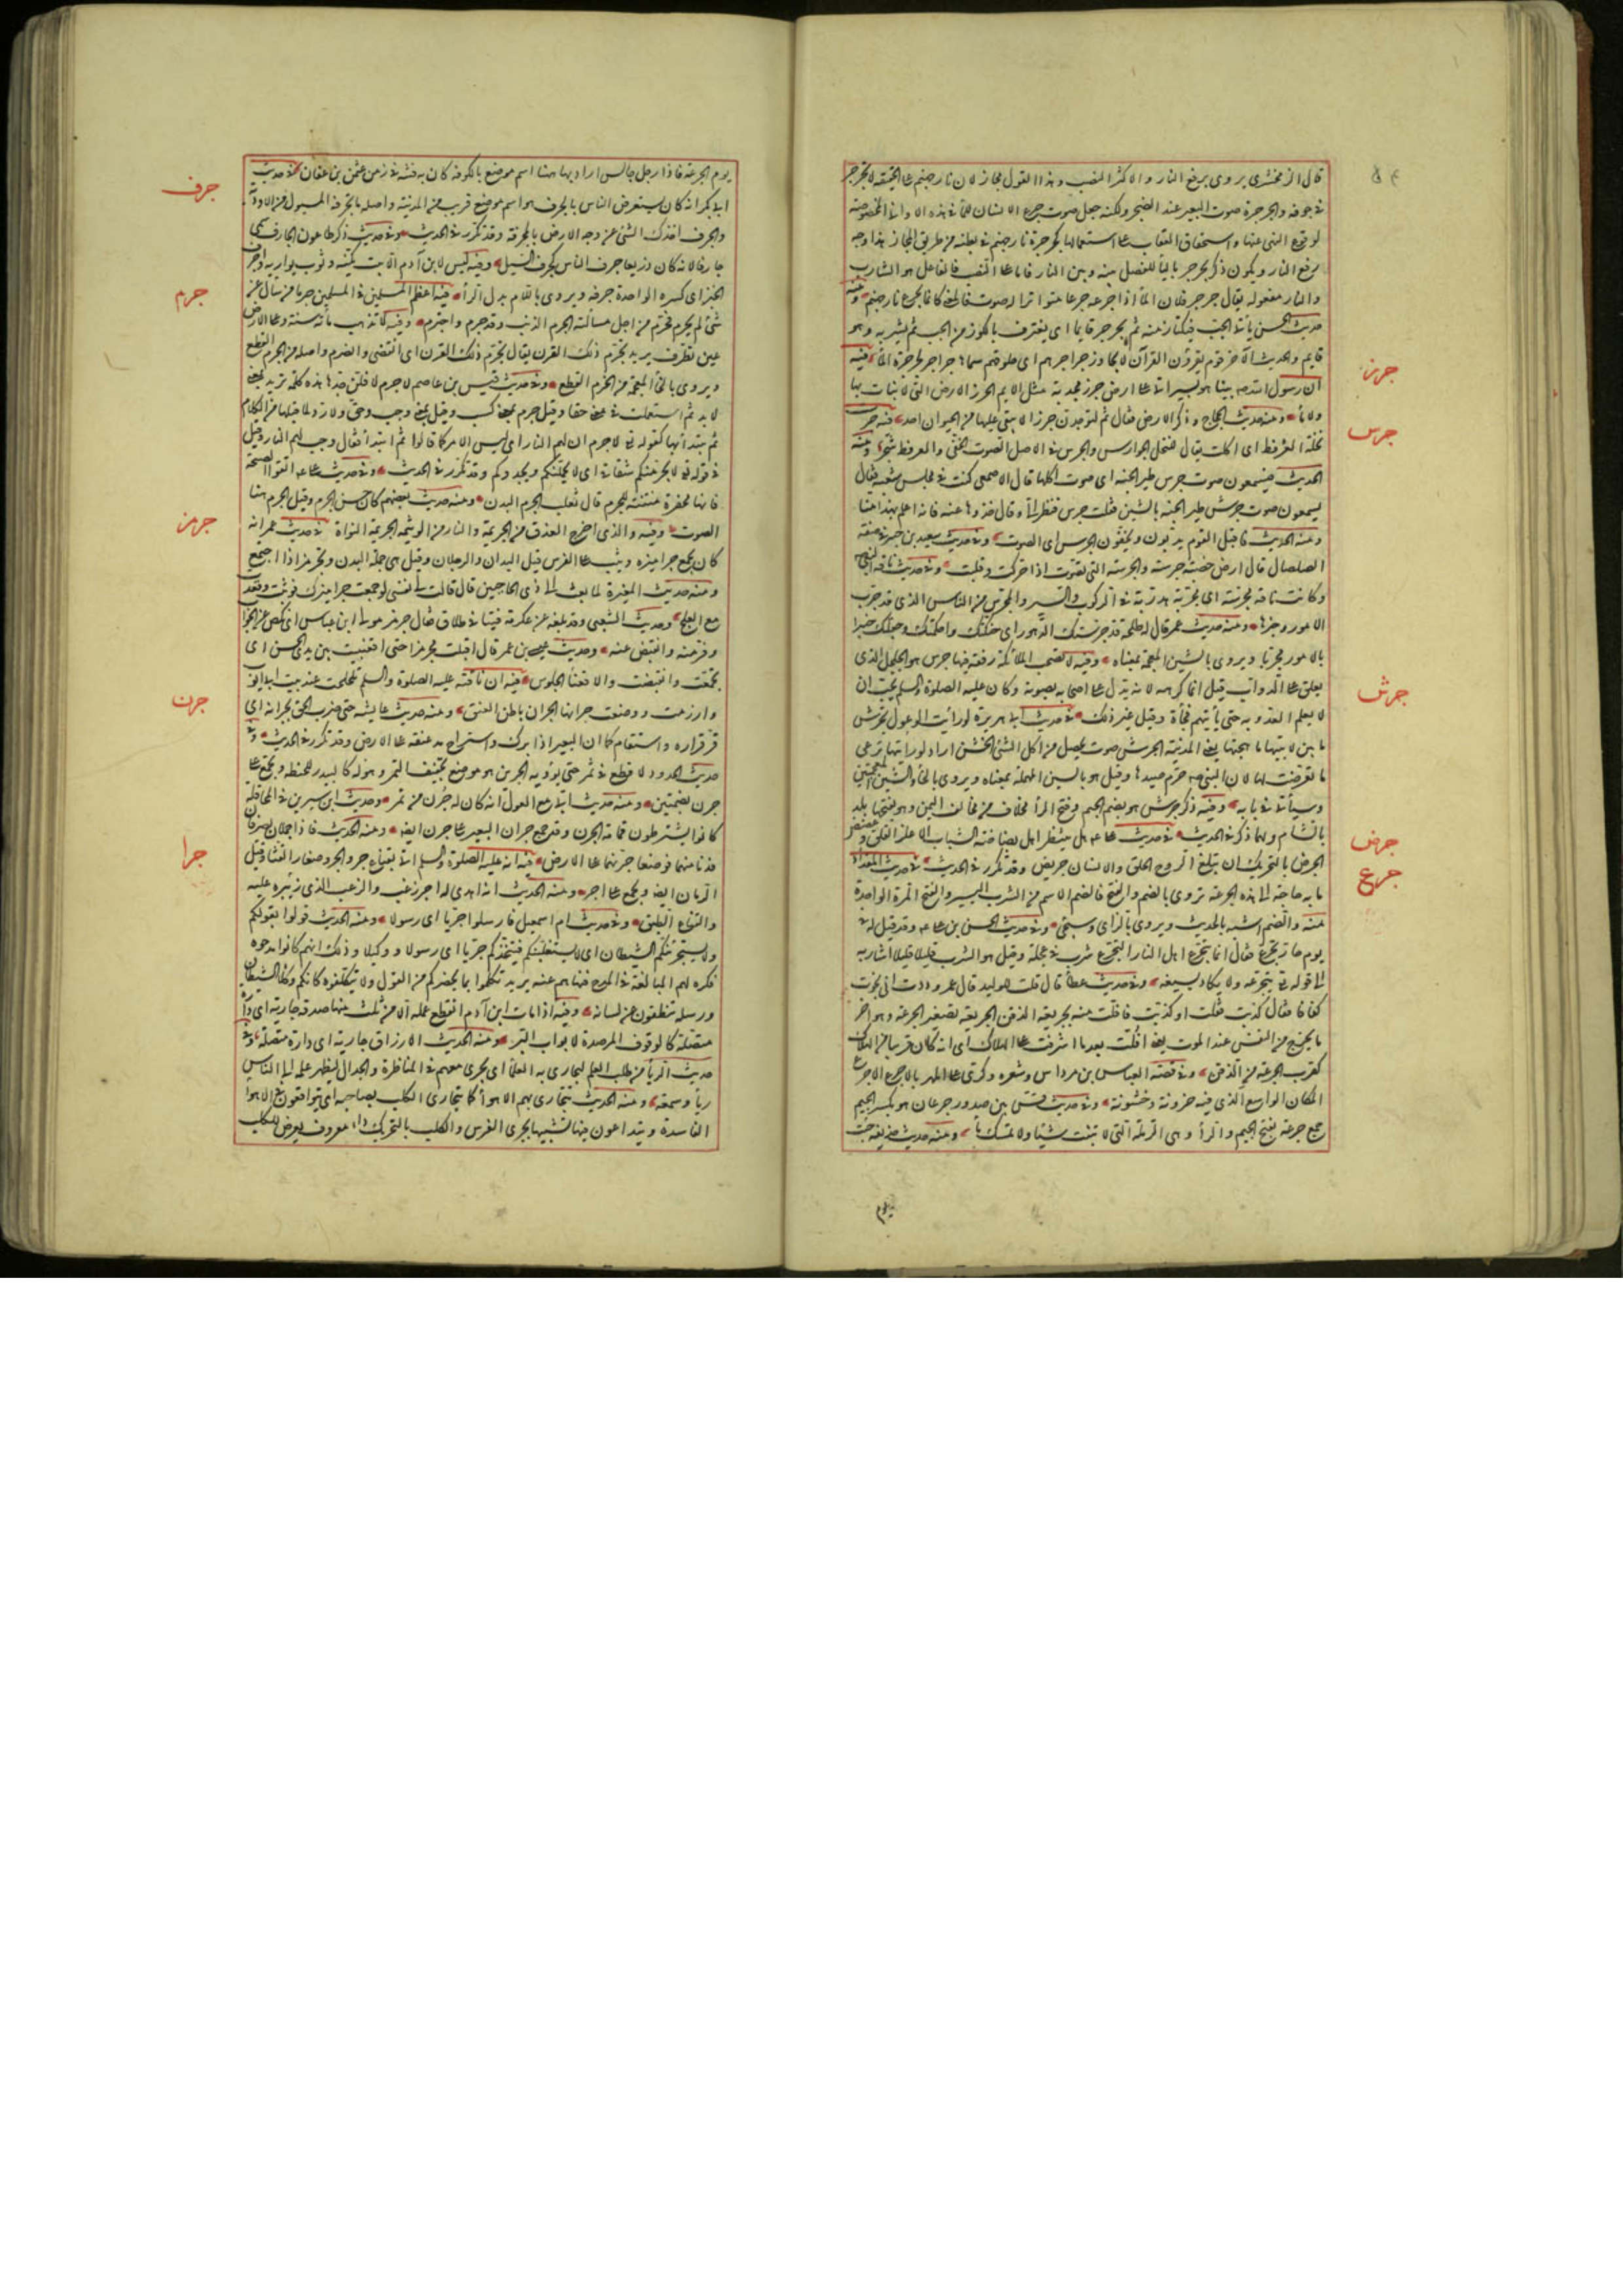 قال الزمخشرى يروى برفع النار والاكثر النصب وهذا القول مجاز لان نار جهنم على الحقيقة لا تجرجر
فى جوفه والجرجرة صوت البعير عند الضجر ولكنه جعل صوت جرع الانسان للماء فى هذه الاوانى المخصوصة
لوقوع النهى عنها واستحقاق العقاب على استعمالها كجرجرة نار جهنم فى بطنه من طريق المجاز هذا وجه
رفع النار ويكون ذكر يجرجر بالياء للفصل بينه وبين النار فاما على النصب فالفاعل هو الشارب
والنار مفعوله يقال جرجر فلان الماء اذا جرعه جرعا متواترا له صوت فالمعنى كانما يجرع نار جهنم ومنه
حديث الحسن يأتى الحب فيكتاز منه ثم يجرجر قايما اى يغترف بالكوز من الحب ثم يشربه وهو
قايم والحديث الآخر قوم يقرؤن القرآن لا يجاوز جراجرهم اى حلوقهم سماها جراجر لجرجرة الماء فيه
جرز
ان رسول الله بينا هو يسير اتى على ارض جرز مجدبة مثل الايم الجرز الارض التى لا نبات بها
ولا ماء ومنه حديث الحجاج وذكر الارض فقال ثم لتوجدن جرزا لا يبقى عليها من الحيوان احد فيه جرست
جرس
نحلة العرفط اى اكلت يقال للنحل الجوارس والجرس فى الاصل الصوت الخفى والعرفط شجر ومنه
الحديث فيسمعون صوت جرس طير الجنة اى صوت اكلها قال الاصمعى كنت فى مجلس شعبة فقال
يسمعون صوت جرش طير الجنة بالشين فقلت جرس فنظر الى وقال خذوها عنه فانه اعلم بهذا منا
ومنه الحديث فاقبل القوم يدبون ويخفون الجرس اى الصوت وفى حديث سعيد بن جبير فى صفة
الصلصال قال ارض خصبة جرسة والجرسة التى تصوت اذا حركت وقلبت وفى حديث ناقة النبى
وكانت ناقة مجرسة اى مجربة مدربة فى الركوب والسير والمجرس من الناس الذى قد جرب
الامور وخبرها ومنه حديث عمر قال له طلحة قد جرستك الدهور اى حنكتك واحكمتك وجعلتك خبيرا
بالامور مجربا ويروى بالشين المعجمة بمعناه وفيه لا تصحب الملائكة رفقة فيها جرس هو الجلجل الذى
يعلق على الدواب قيل انما كرهه لانه يدل على اصحابه بصوته وكان عليه الصلوة والسلم يحب ان
لا يعلم العدو به حتى يأتيهم فجأة وقيل غير ذلك فى حديث ابى هريرة لو رأيت الوعول تجرش
جرش
ما بين لابتيها ما هجتها يعنى المدينة الجرش صوت يحصل من اكل الشئ الخشن اراد لو رايتها ترعى
ما تعرضت لها لان النبى حرم صيدها وقيل هو بالسين المهملة بمعناه ويروى بالخاء والشين المعجمتين
وسيأتى فى بابه وفيه ذكر جرش هو بضم الجيم وفتح الراء مخلاف من مخاليف اليمن وهو بفتحها بلد
بالشام ولهما ذكر فى الحديث فى حديث على هل ينتظر اهل بضاضة الشباب الا علز القلق وغصص
جرض
الجرض بالتحريك ان تبلغ الروح الحلق والانسان جريض وقد تكرر فى الحديث فى حديث المقداد
جرع
ما به حاجة الى هذه الجرعة تروى بالضم والفتح فالضم الاسم من الشرب اليسير والفتح المرة الواحدة
منه والضم اشبه بالحديث ويروى بالزاى وسيجئ وفى حديث الحسن بن على وقد قيل له فى
يوم حار تجرع فقال انما يتجرع اهل النار التجرع شرب فى عجلة وقيل هو الشرب قليلا قليلا اشار به
الى قوله تع يتجرعه ولا يكاد يسيغه وفى حديث عطاء قال قلت للوليد قال عمر وددت انى نجوت
كفافا فقال كذبت فقلت او كذبت فافلت منه بجريعة الذقن الجريعة تصغير الجرعة وهو اخر
ما يخرج من النفس عند الموت يعنى افلت بعدما اشرفت على الهلاك اى انه كان قريبا من الهلاك
كقرب الجرعة من الذقن وفى قصة العباس بن مرداس وشعره وكرى على المهر بالاجرع الاجرع
المكان الواسع الذى فيه حزونة وخشونة وفى حديث قس بين صدور جرعان هو بكسر الجيم
جمع جرعة بفتح الجيم والراء وهى الرملة التى لا تنبت شيئا ولا تمسك ماء ومنه حديث حذيفة جئت
يوم
يوم الجرعة فاذا رجل جالس اراد بها هنا اسم موضع بالكوفة كان به فتنة فى زمن عثمن بن عفان فى حديث
جرف
ابى بكر انه كان يستعرض الناس بالجرف هو اسم موضع قريب من المدينة واصله ما تجرفه السيول من الاودية
والجرف اخذك الشئ عن وجه الارض بالمجرفة وقد تكرر فى الحديث وفى حديث ذكر طاعون الجارف سمى
جارفا لانه كان ذريعا جرف الناس كجرف السيل وفيه ليس لابن آدم الا بيت يكنه وثوب يواريه وجرف
الخبز اى كسره الواحدة جرفة ويروى باللام بدل الراء فيه اعظم المسلمين فى المسلمين جرما من سال عن
جرم
شئ لم يحرم فحرم من اجل مسألته الجرم الذنب وقد جرم واجترم وفيه لا تذهب مائة سنة وعلى الارض
عين تطرف يريد تجرم ذلك القرن يقال تجرم ذلك القرن اى انقضى وانصرم واصله من الجرم القطع
ويروى بالخاء المعجمة من الخرم القطع وفى حديث قيس بن عاصم لا جرم لافلن حدها هذه كلمة ترد بمعنى
لابد ثم استعملت فى معنى حقا وقيل جرم بمعنى كسب وقيل بمعنى وجب وحق ولا رد لما قبلها من الكلام
ثم يبتدأ بها كقوله تع لا جرم ان لهم النار اى ليس الامر كما قالوا ثم ابتدأ فقال وجب لهم النار وقيل
فى قوله تع لا يجرمنكم شقاقى اى لا يحملنكم ويحدوكم وقد تكرر فى الحديث وفى حديث على اتقوا الصبحة
فانها مجفرة منتنة للجرم قال ثعلب الجرم البدن ومنه حديث بعضهم كان حسن الجرم وقيل الجرم هنا
الصوت وفيه والذى اخرج العذق من الجريمة والنار من الوثيمة الجريمة النواة فى حديث عمر انه
جرمز
كان يجمع جراميزه ويثب على الفرس قيل اليدان والرجلان وقيل هى جملة البدن وتجرمز اذا اجتمع
ومنه حديث المغيرة لما بعث الى ذى الحاجبين قال قالت لى نفسى لو جمعت جراميزك فوثبت وقعدت
مع العلج وحديث الشعبى وقد بلغه عن عكرمة فتيا فى طلاق فقال جرمز مولى ابن عباس اى نكص عن الجواب
وفر منه وانقبض عنه وحديث عيسى بن عمر قال اقبلت مجرمزا حتى اقعنبيت بين يدى الحسن اى
تجمعت وانقبضت والاقعنباء الجلوس فيه ان ناقته عليه الصلوة والسلم تلحلحت عند بيت ابى ايوب
جرن
وارزمت ووضعت جرانها الجران باطن العنق ومنه حديث عايشة حتى ضرب الحق بجرانه اى
قر قراره واستقام كما ان البعير اذا برك واستراح مد عنقه على الارض وقد تكرر فى الحديث وفى
حديث الحدود لا قطع فى ثمر حتى يؤويه الجرين هو موضع تجفيف التمر وهو له كالبيدر للحنطة ويجمع على
جرن بضمتين ومنه حديث ابى مع الغول انه كان له جرن من تمر وحديث ابن سيرين فى المحاقلة
كانوا يشترطون قمامة الجرن وقد جمع جران البعير على جرن ايضا ومنه الحديث فاذا جملان يصرفان
فدنا منهما فوضعا جرنهما على الارض فيه انه عليه الصلوة والسلم اتى بقناع جرو الجرو صغار القثاء وقيل
جرا
الرمان ايضا ويجمع على اجر ومنه الحديث انه اهدى له اجر زغب والزغب الذى زئبره عليه
والقناع الطبق وفى حديث ام اسمعيل فارسلوا جريا اى رسولا ومنه الحديث قولوا بقولكم
ولا يستجرينكم الشيطان اى لا يستغلبنكم فيتخذكم جريا اى رسولا ووكيلا وذلك انهم كانوا مدحوه
فكره لهم المبالغة فى المدح فنهاهم عنه يريد تكلموا بما يحضركم من القول ولا تتكلفوه كانكم وكلاء الشيطان
ورسله تنطقون عن لسانه وفيه اذا مات ابن آدم انقطع عمله الا من ثلث منها صدقة جارية اى دارة
متصلة كالوقوف المرصدة لابواب البر ومنه الحديث الارزاق جارية اى دارة متصلة وفى
حديث الرياء من طلب العلم ليجارى به العلماء اى يجرى معهم فى المناظرة والجدال ليظهر علمه الى الناس
رياء وسمعة ومنه الحديث تتجارى بهم الاهواء كما يتجارى الكلب بصاحبه اى يتواقعون فى الاهواء
الفاسدة ويتداعون فيها تشبيها بجرى الفرس والكلب بالتحريك داء معروف يعرض للكلب